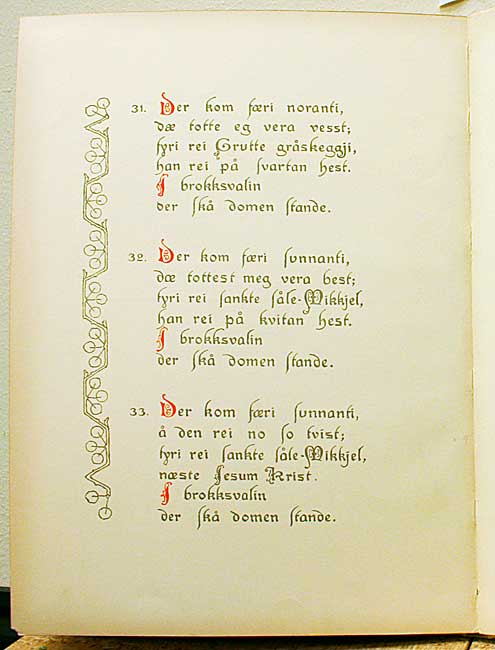 31. Der kom færi noranti,
dæ totte eg vera vesst;
fyri rei Grutte gråskeggji,
han rei på svartan hest.
I brokksvalin
der skå domen stande.
32. Der kom færi sunnanti,
dæ tottest meg vera best;
fyri rei sankte såle-Mikkjel,
han rei på kvitan hest.
I brokksvalin
der skå domen stande.
33. Der kom færi sunnanti,
å den rei no so tvist;
fyri rei sankte såle-Mikkjel,
næste Jesum Krist.
I brokksvalin
der skå domen stande.